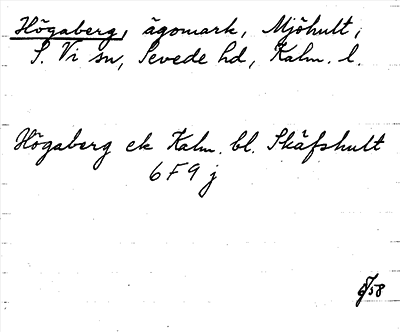 Högaberg, ägomark, Mjöhult,
S. Vi sn, Sevede hd, Kalm. l.
Högaberg ek Kalm. bl. Skäfshult
6F9 j